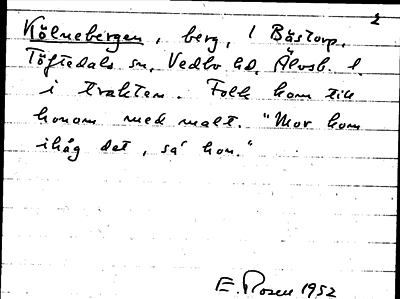 2
Kölnebergen, berg, i Båstorp,
Töftedals sn, Vedbo hd, Älvsb. l.
i trakten. Folk kom till
honom med malt. "Mor kom
ihåg det, sa' hon."
E. Rosen 1952